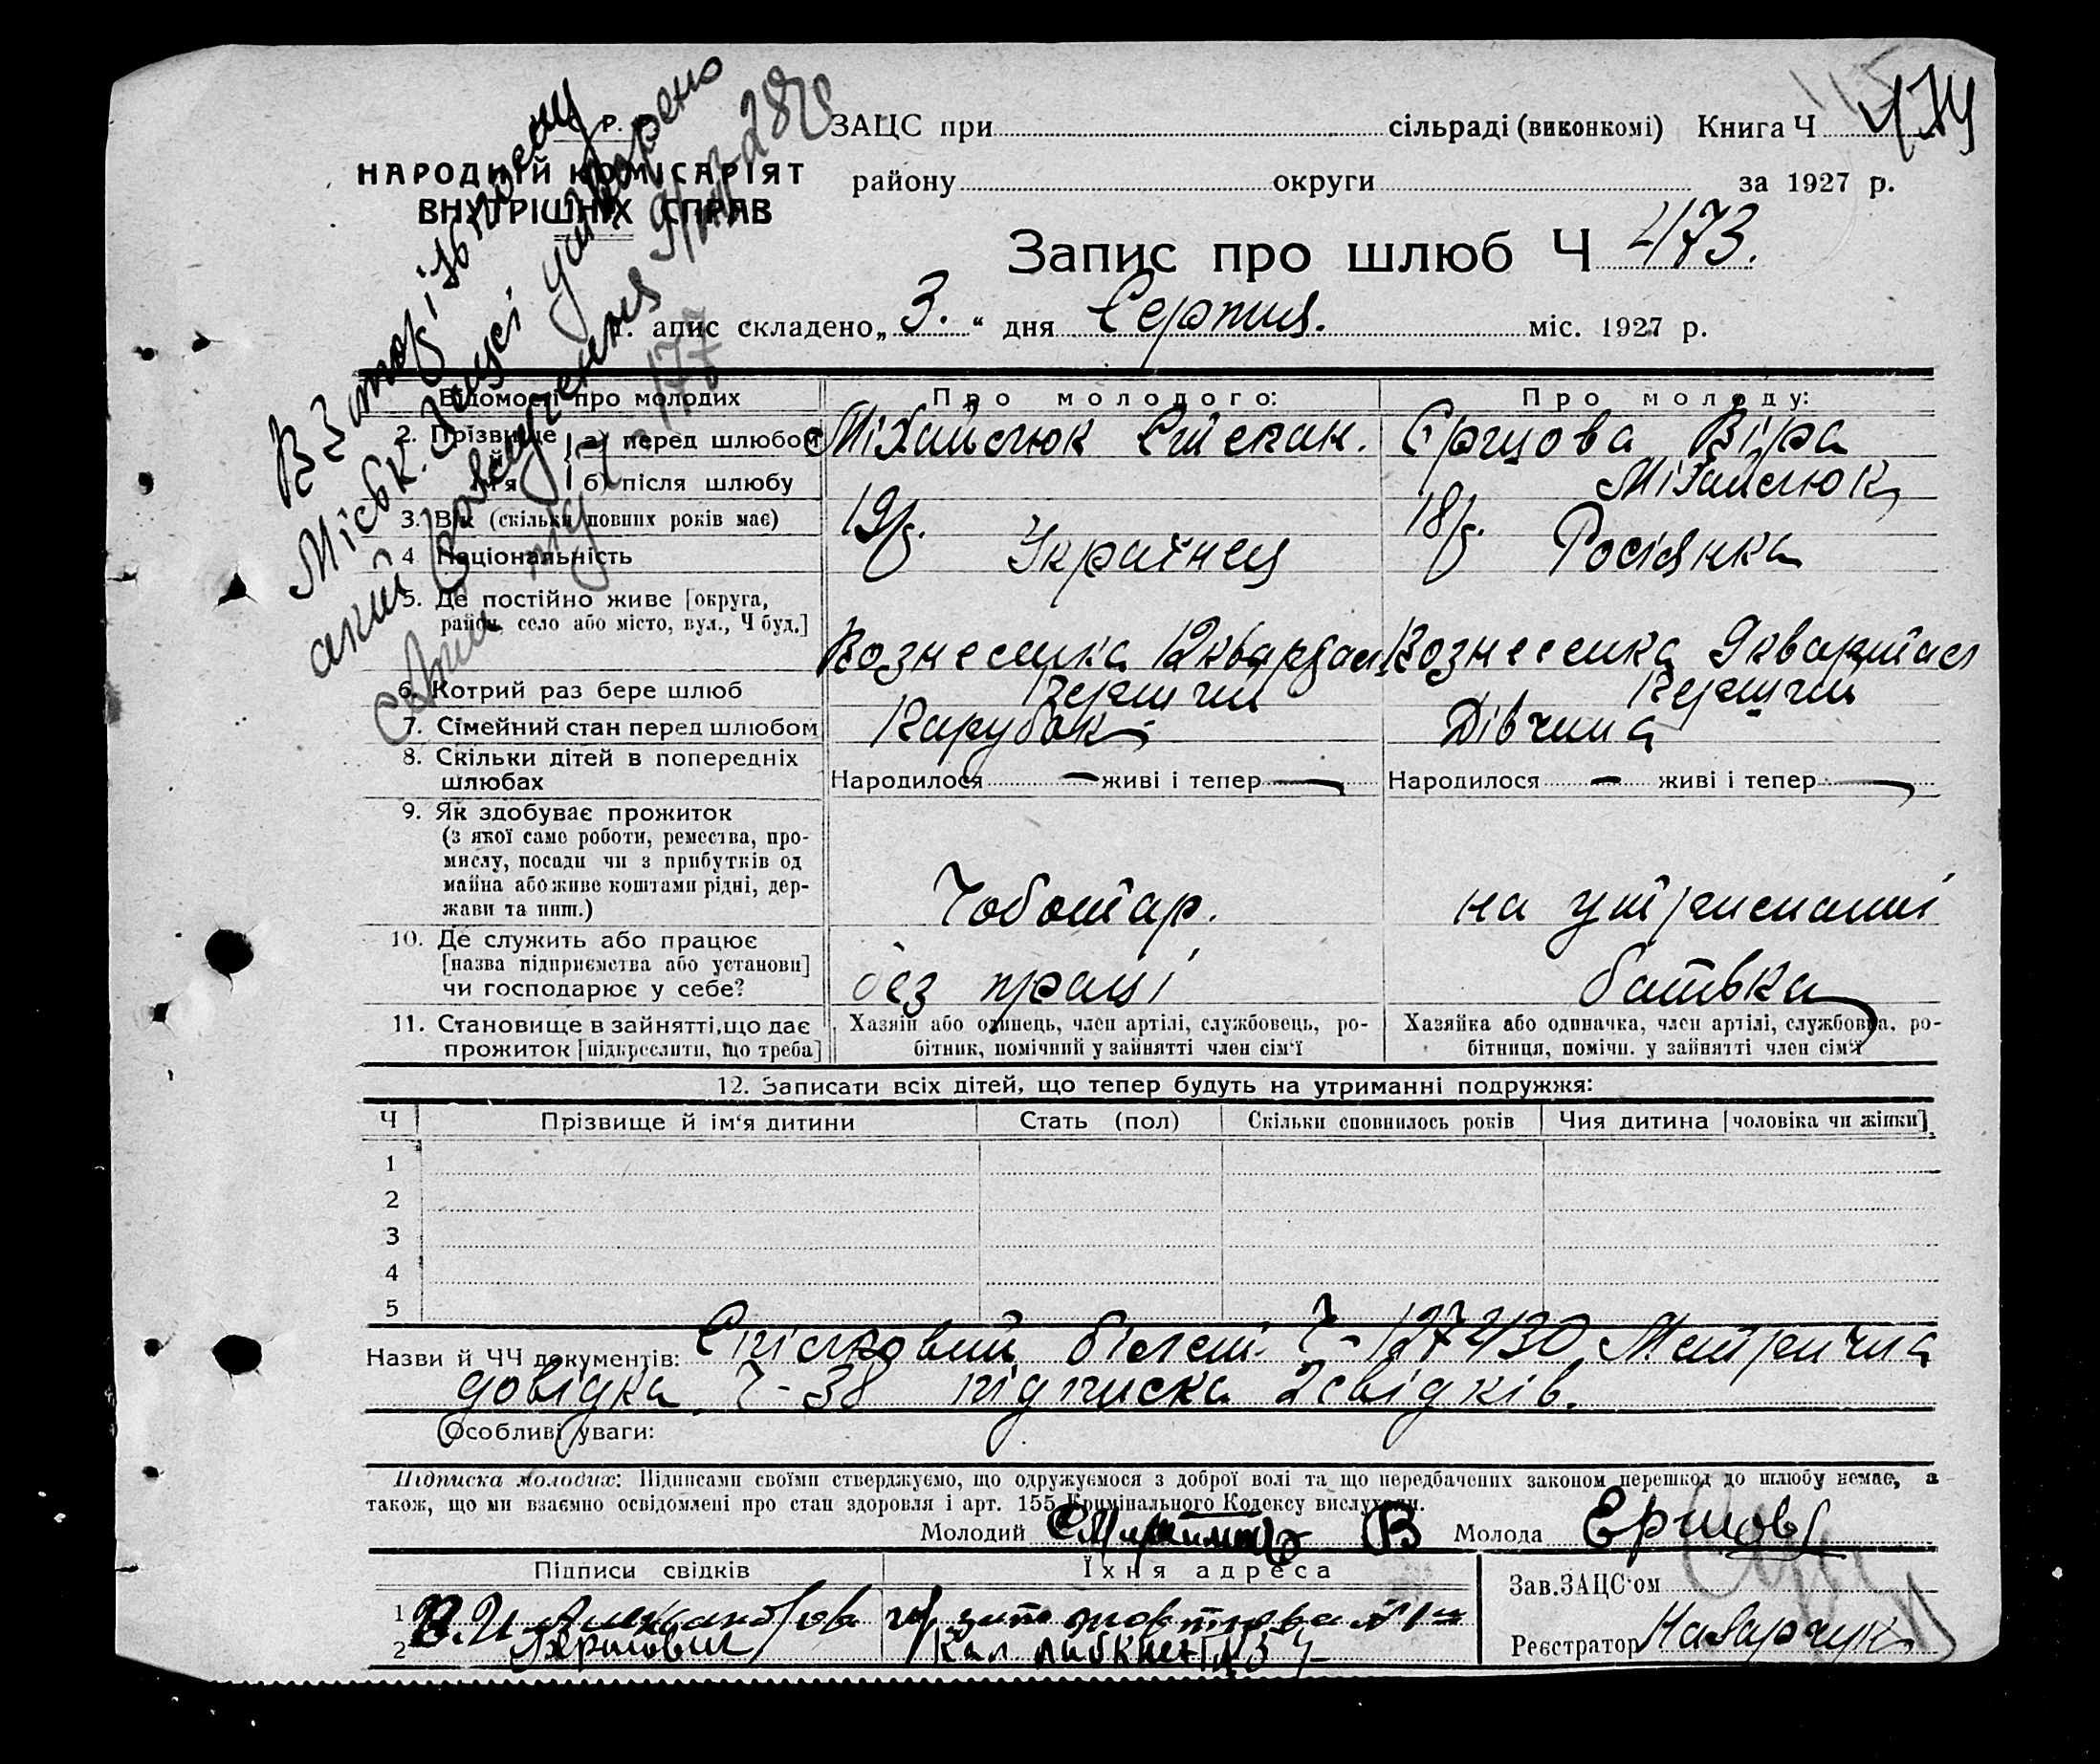 Р.
НАРОДНІЙ КОМІСАРІЯТ
ВНУТРІШНІХ СПРАВ
ЗАЦС при сільраді (виконкомі) Книга Ч 474
району округи за 1927 р.
Запис про шлюб Ч 473.
1. апис складено „ 3. “ дня Серпня. міс. 1927 р.
В Запорізькому
Міськ. Загсі утворено
акт розлучення
під Ч. 177
Відомості про молодих
Про молодого:
Про молоду:
2. Прізвище й ім'я
а) перед шлюбом
Міхайлюк Степан.
Єршова Віра
б) після шлюбу
Міхайлюк
3. Вік (скільки повних років має)
19р.
18р.
4 Національність
Українец
Росіянка
5. Де постійно живе [округа,
район, село або місто, вул., Ч буд.]
Вознесенка 12 квартал
Вознесенка 9 квартал
6. Котрий раз бере шлюб
Перший
Перший
7. Сімейний стан перед шлюбом
Парубок
Дівчина
8. Скільки дітей в попередніх
шлюбах
Народилося — живі і тепер —
Народилося — живі і тепер —
9. Як здобуває прожиток
(з якої саме роботи, ремества, про-
мислу, посади чи з прибутків од
майна або живе коштами рідні, дер-
жави та инш.)
Чоботар.
на утриманні
10. Де служить або працює
[назва підприємства або установи]
чи господарює у себе?
без праці
батька
11. Становище в зайнятті, що дає
прожиток [підкреслити, що треба]
Хазяїн або одинець, член артілі, службовець, ро-
бітник, помічний у зайнятті член сім'ї
Хазяйка або одиначка, член артілі, службовка, ро-
бітниця, помічн. у зайнятті член сім'ї
12. Записати всіх дітей, що тепер будуть на утриманні подружжя:
Ч Прізвище й ім'я дитини Стать (пол) Скільки сповнилось років Чия дитина [чоловіка чи жінки]
1
2
3
4
5
Назви й ЧЧ документів: Спілковий білет Ч-127430 Метрична
довідка Ч-38 підписка 2 свідків.
Особливі уваги:
Підписка молодих: Підписами своїми стверджуємо, що одружуємося з доброї волі та що передбачених законом перешкод до шлюбу немає, а
також, що ми взаємно освідомлені про стан здоровля і арт. 155 Кримінального Кодексу вислухали.
Молодий
Молода В Ершова
Підписи свідків
Їхня адреса
Зав. ЗАЦС'ом
1
2
Кал Либкнехта
Реєстратор Назарчук